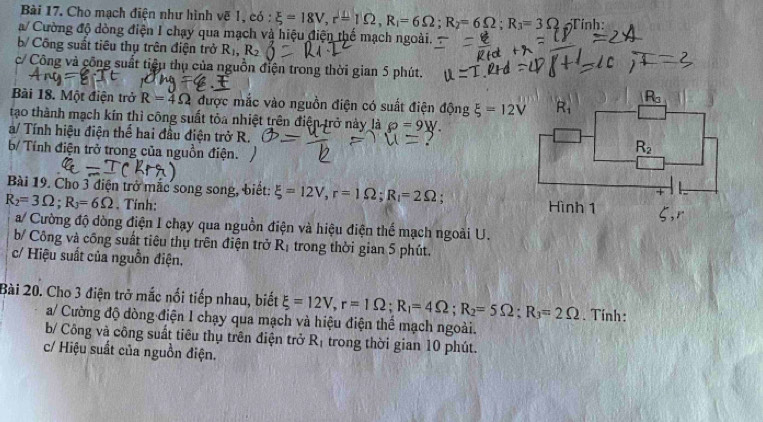 Bài 17. Cho mạch điện như hình vẽ 1, có : ξ = 18V, r = 1 Ω, R₁ = 6 Ω ; R₂ = 6 Ω ; R₃ = 3 Ω . Tính:
a/ Cường độ dòng điện I chạy qua mạch và hiệu điện thế mạch ngoài.
b/ Công suất tiêu thụ trên điện trở R₁, R₂
c/ Công và công suất tiêu thụ của nguồn điện trong thời gian 5 phút.
Bài 18. Một điện trở R = 4 Ω được mắc vào nguồn điện có suất điện động ξ = 12V
tạo thành mạch kín thì công suất tỏa nhiệt trên điện trở này là ℘ = 9W.
a/ Tính hiệu điện thế hai đầu điện trở R.
b/ Tính điện trở trong của nguồn điện.
R₁
R₃
R₂
+ -
Hình 1
ξ,r
Bài 19. Cho 3 điện trở mắc song song, biết: ξ = 12V, r = 1 Ω ; R₁ = 2 Ω ;
R₂ = 3 Ω ; R₃ = 6 Ω . Tính:
a/ Cường độ dòng điện I chạy qua nguồn điện và hiệu điện thế mạch ngoài U.
b/ Công và công suất tiêu thụ trên điện trở R₁ trong thời gian 5 phút.
c/ Hiệu suất của nguồn điện.
Bài 20. Cho 3 điện trở mắc nối tiếp nhau, biết ξ = 12V, r = 1 Ω ; R₁ = 4 Ω ; R₂ = 5 Ω ; R₃ = 2 Ω . Tính:
a/ Cường độ dòng điện I chạy qua mạch và hiệu điện thế mạch ngoài.
b/ Công và công suất tiêu thụ trên điện trở R₁ trong thời gian 10 phút.
c/ Hiệu suất của nguồn điện.